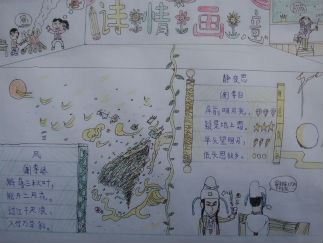 诗情画意
静夜思
唐李白
床前明月光，
疑是地上霜，
举头望明月，
低头思故乡。
风
唐李峤
解落三秋叶，
能开二月花。
过江千尺浪，
入竹万竿斜。